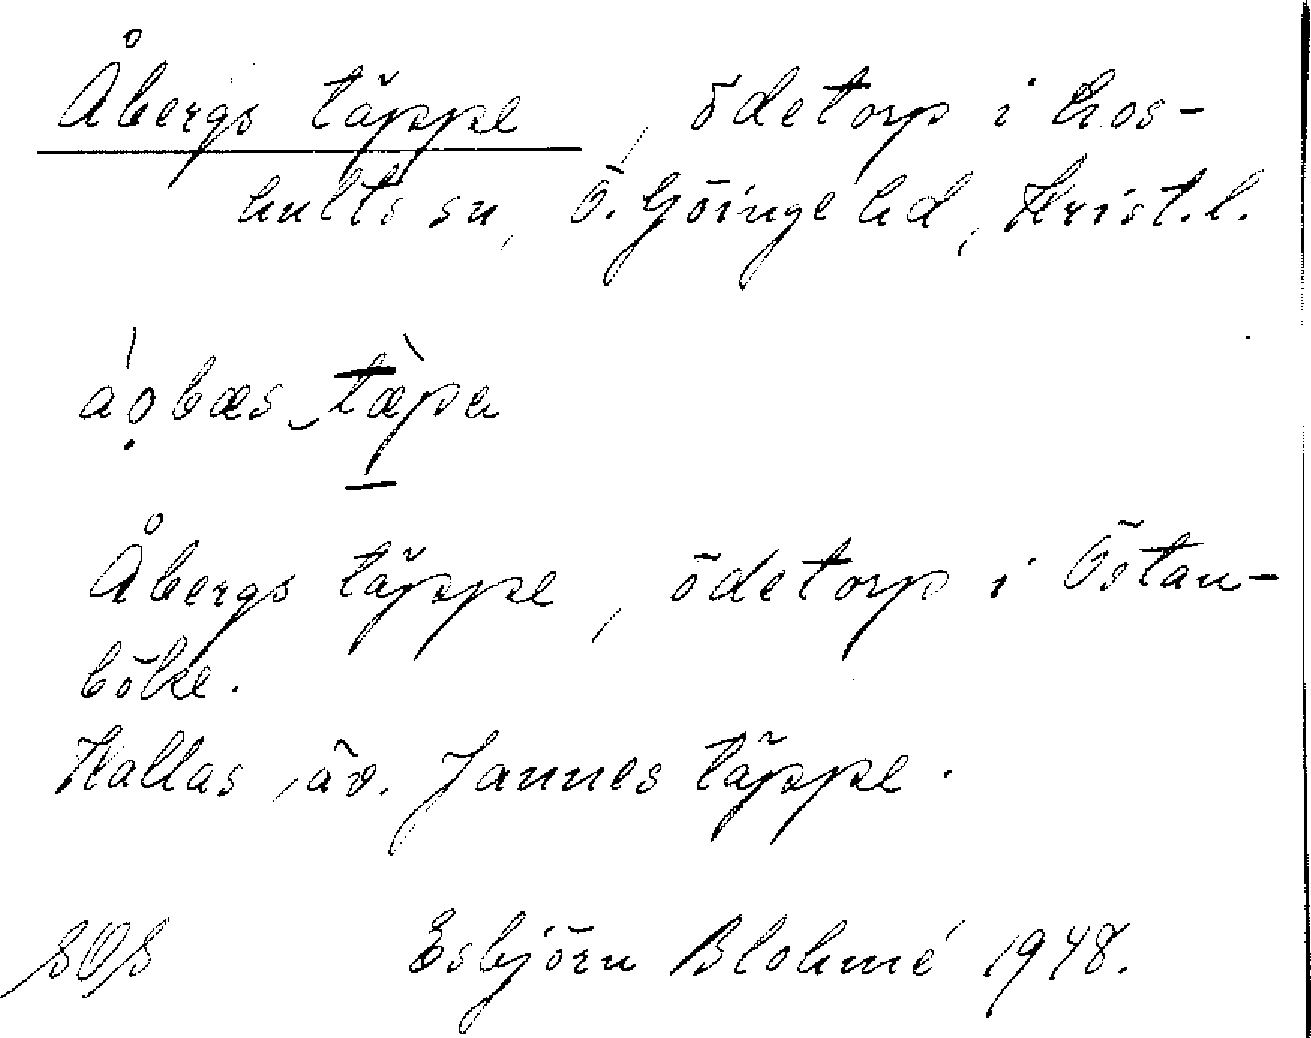 Åbergs täppe, ödetorp i Hos-
hults sn, Ö. Göinge hd, Krist. l.
áo̤bæs tæ̀pa
Åbergs täppe, ödetorp i Östan-
böke.
Kallas äv. Jannes täppe.
Esbjörn Blohmé 1948.